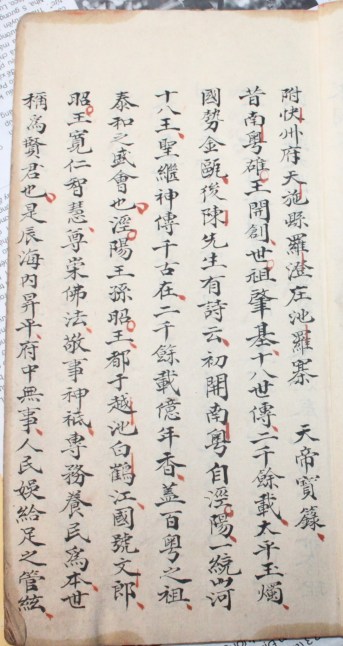 附快州府天施縣羅澄庄池羅寨 天帝寶籙
昔南粵雄王開創、世祖肇基、十八世傳、二千餘載、太平玉燭、
國勢金甌、後陳先生有詩云、初開南粵自涇陽、一統山河
十八王、聖繼神傳千古在、二千餘載億年香、蓋百粵之祖、
泰和之盛會也、涇陽王孫昭王、都于越池白鶴江、國號文郎
昭王寬仁智慧、尊崇佛法、敬事神祇、專務養民爲本、世
稱爲賢君也、是辰海內昇平、府中無事、人民娛給足之管絃、